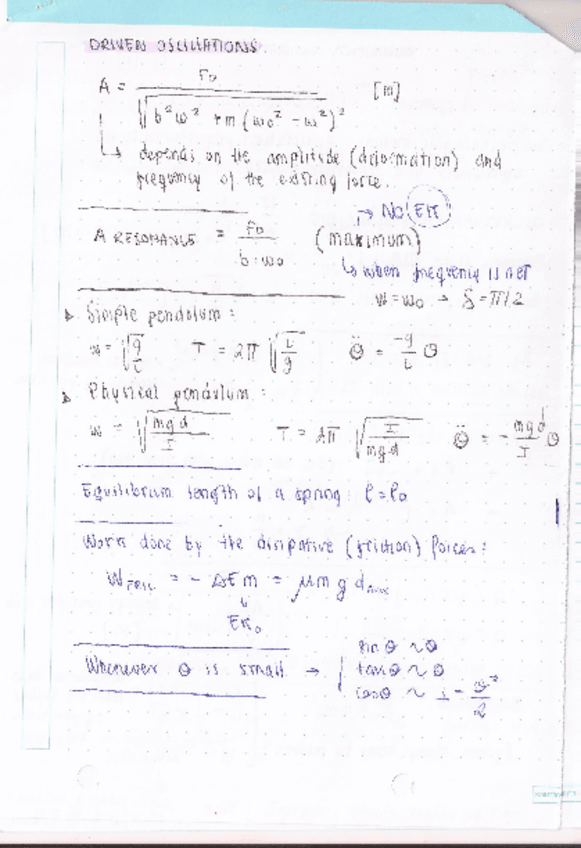 DRIVEN OSCILLATIONS
A = F₀ / √(b²ω² + m(ω₀² - ω²)² [m]
↳ depends on the amplitude (deformation) and
frequency of the existing force.
→ NO(EIT)
A RESONANCE = F₀ / b·ω₀ (maximum)
↳ when frequency is
ω = ω₀ → δ = π/2
Simple pendulum:
ω = √(g/L) T = 2π √(L/g) θ̈ = -g/L θ
Physical pendulum:
ω = √(mgd/I) T = 2π √(I/mgd) θ̈ = - mgd/I θ
Equilibrium length of a spring: l = l₀
Work done by the disipative (friction) forces:
W FRIC = - ΔEm = μmg d
EK₀
Whenever θ is small → sin θ ~ θ
tan θ ~ θ
cos θ ~ 1 - θ²/2